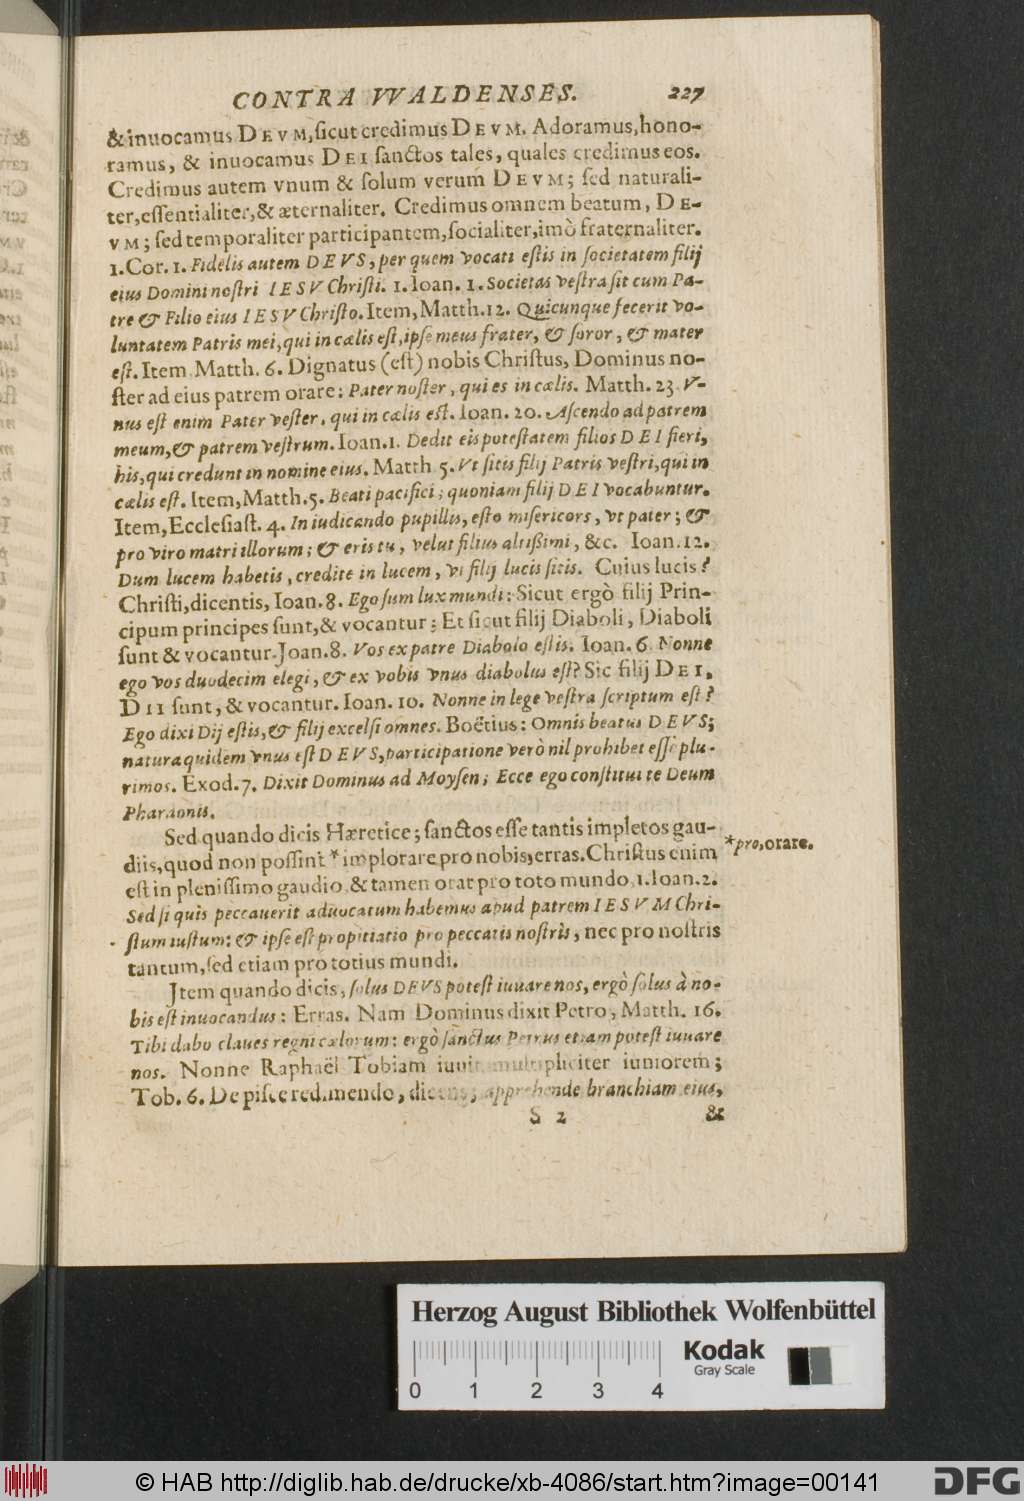 CONTRA VVALDENSES. 227
& inuocamus DEVM, ſicut credimus DEVM. Adoramus, hono-
ramus, & inuocamus DEI ſanctos tales, quales credimus eos.
Credimus autem vnum & ſolum verum DEVM; ſed naturali-
ter, eſſentialiter, & æternaliter. Credimus omnem beatum, DE-
VM; ſed temporaliter participantem, ſocialiter, imò fraternaliter.
1. Cor. 1. Fidelis autem DEVS, per quem vocati eſtis in ſocietatem filij
eius Domini noſtri IESV Chriſti. 1. Ioan. 1. Societas veſtra ſit cum Pa-
tre & Filio eius IESV Chriſto. Item, Matth. 12. Quicunque fecerit vo-
luntatem Patris mei, qui in cœlis eſt, ipſe meus frater, & ſoror, & mater
eſt. Item Matth. 6. Dignatus (eſt) nobis Chriſtus, Dominus no-
ſter ad eius patrem orare: Pater noſter, qui es in cœlis. Matth. 23 V-
nus eſt enim Pater veſter, qui in cœlis eſt. Ioan. 20. Aſcendo ad patrem
meum, & patrem veſtrum. Ioan. 1. Dedit eis poteſtatem filios DEI fieri,
his, qui credunt in nomine eius. Matth 5. Vt ſitis filij Patris veſtri, qui in
cœlis eſt. Item, Matth. 5. Beati pacifici; quoniam filij DEI vocabuntur.
Item, Eccleſiaſt. 4. In iudicando pupillis, eſto miſericors, vt pater; &
pro viro matri illorum; & eris tu, velut filius altißimi, &c. Ioan. 12.
Dum lucem habetis, credite in lucem, vt filij lucis ſitis. Cuius lucis?
Chriſti, dicentis, Ioan. 8. Ego ſum lux mundi: Sicut ergò filij Prin-
cipum principes ſunt, & vocantur: Et ſicut filij Diaboli, Diaboli
ſunt & vocantur. Ioan. 8. Vos ex patre Diabolo eſtis. Ioan. 6 Nonne
ego vos duodecim elegi, & ex vobis vnus diabolus eſt? Sic filij DEI,
DII ſunt, & vocantur. Ioan. 10. Nonne in lege veſtra ſcriptum eſt?
Ego dixi Dij eſtis, & filij excelſi omnes. Boëtius: Omnis beatus DEVS;
natura quidem vnus eſt DEVS, participatione verò nil prohibet eſſe plu-
rimos. Exod. 7. Dixit Dominus ad Moyſen; Ecce ego conſtitui te Deum
Pharaonis.
Sed quando dicis Hæretice; ſanctos eſſe tantis impletos gau-
diis, quod non poſſint * implorare pro nobis, erras. Chriſtus enim
*pro, orare.
eſt in pleniſſimo gaudio, & tamen orat pro toto mundo, 1. Ioan. 2.
Sed ſi quis peccauerit aduocatum habemus apud patrem IESVM Chri-
ſtum iuſtum: & ipſe eſt propitiatio pro peccatis noſtris, nec pro noſtris
tantum, ſed etiam pro totius mundi.
Item quando dicis, ſolus DEVS poteſt iuuare nos, ergò ſolus à no-
bis eſt inuocandus: Erras. Nam Dominus dixit Petro, Matth. 16.
Tibi dabo claues regni cœlorum: ergò ſanctus Petrus etiam poteſt iuuare
nos. Nonne Raphaël Tobiam iuuit multipliciter iuniorem;
Tob. 6. De piſce redimendo, dicens; apprehende branchiam eius,
S 2 &
Herzog August Bibliothek Wolfenbüttel
0 1 2 3 4
Kodak
Gray Scale
© HAB http://diglib.hab.de/drucke/xb-4086/start.htm?image=00141
DFG